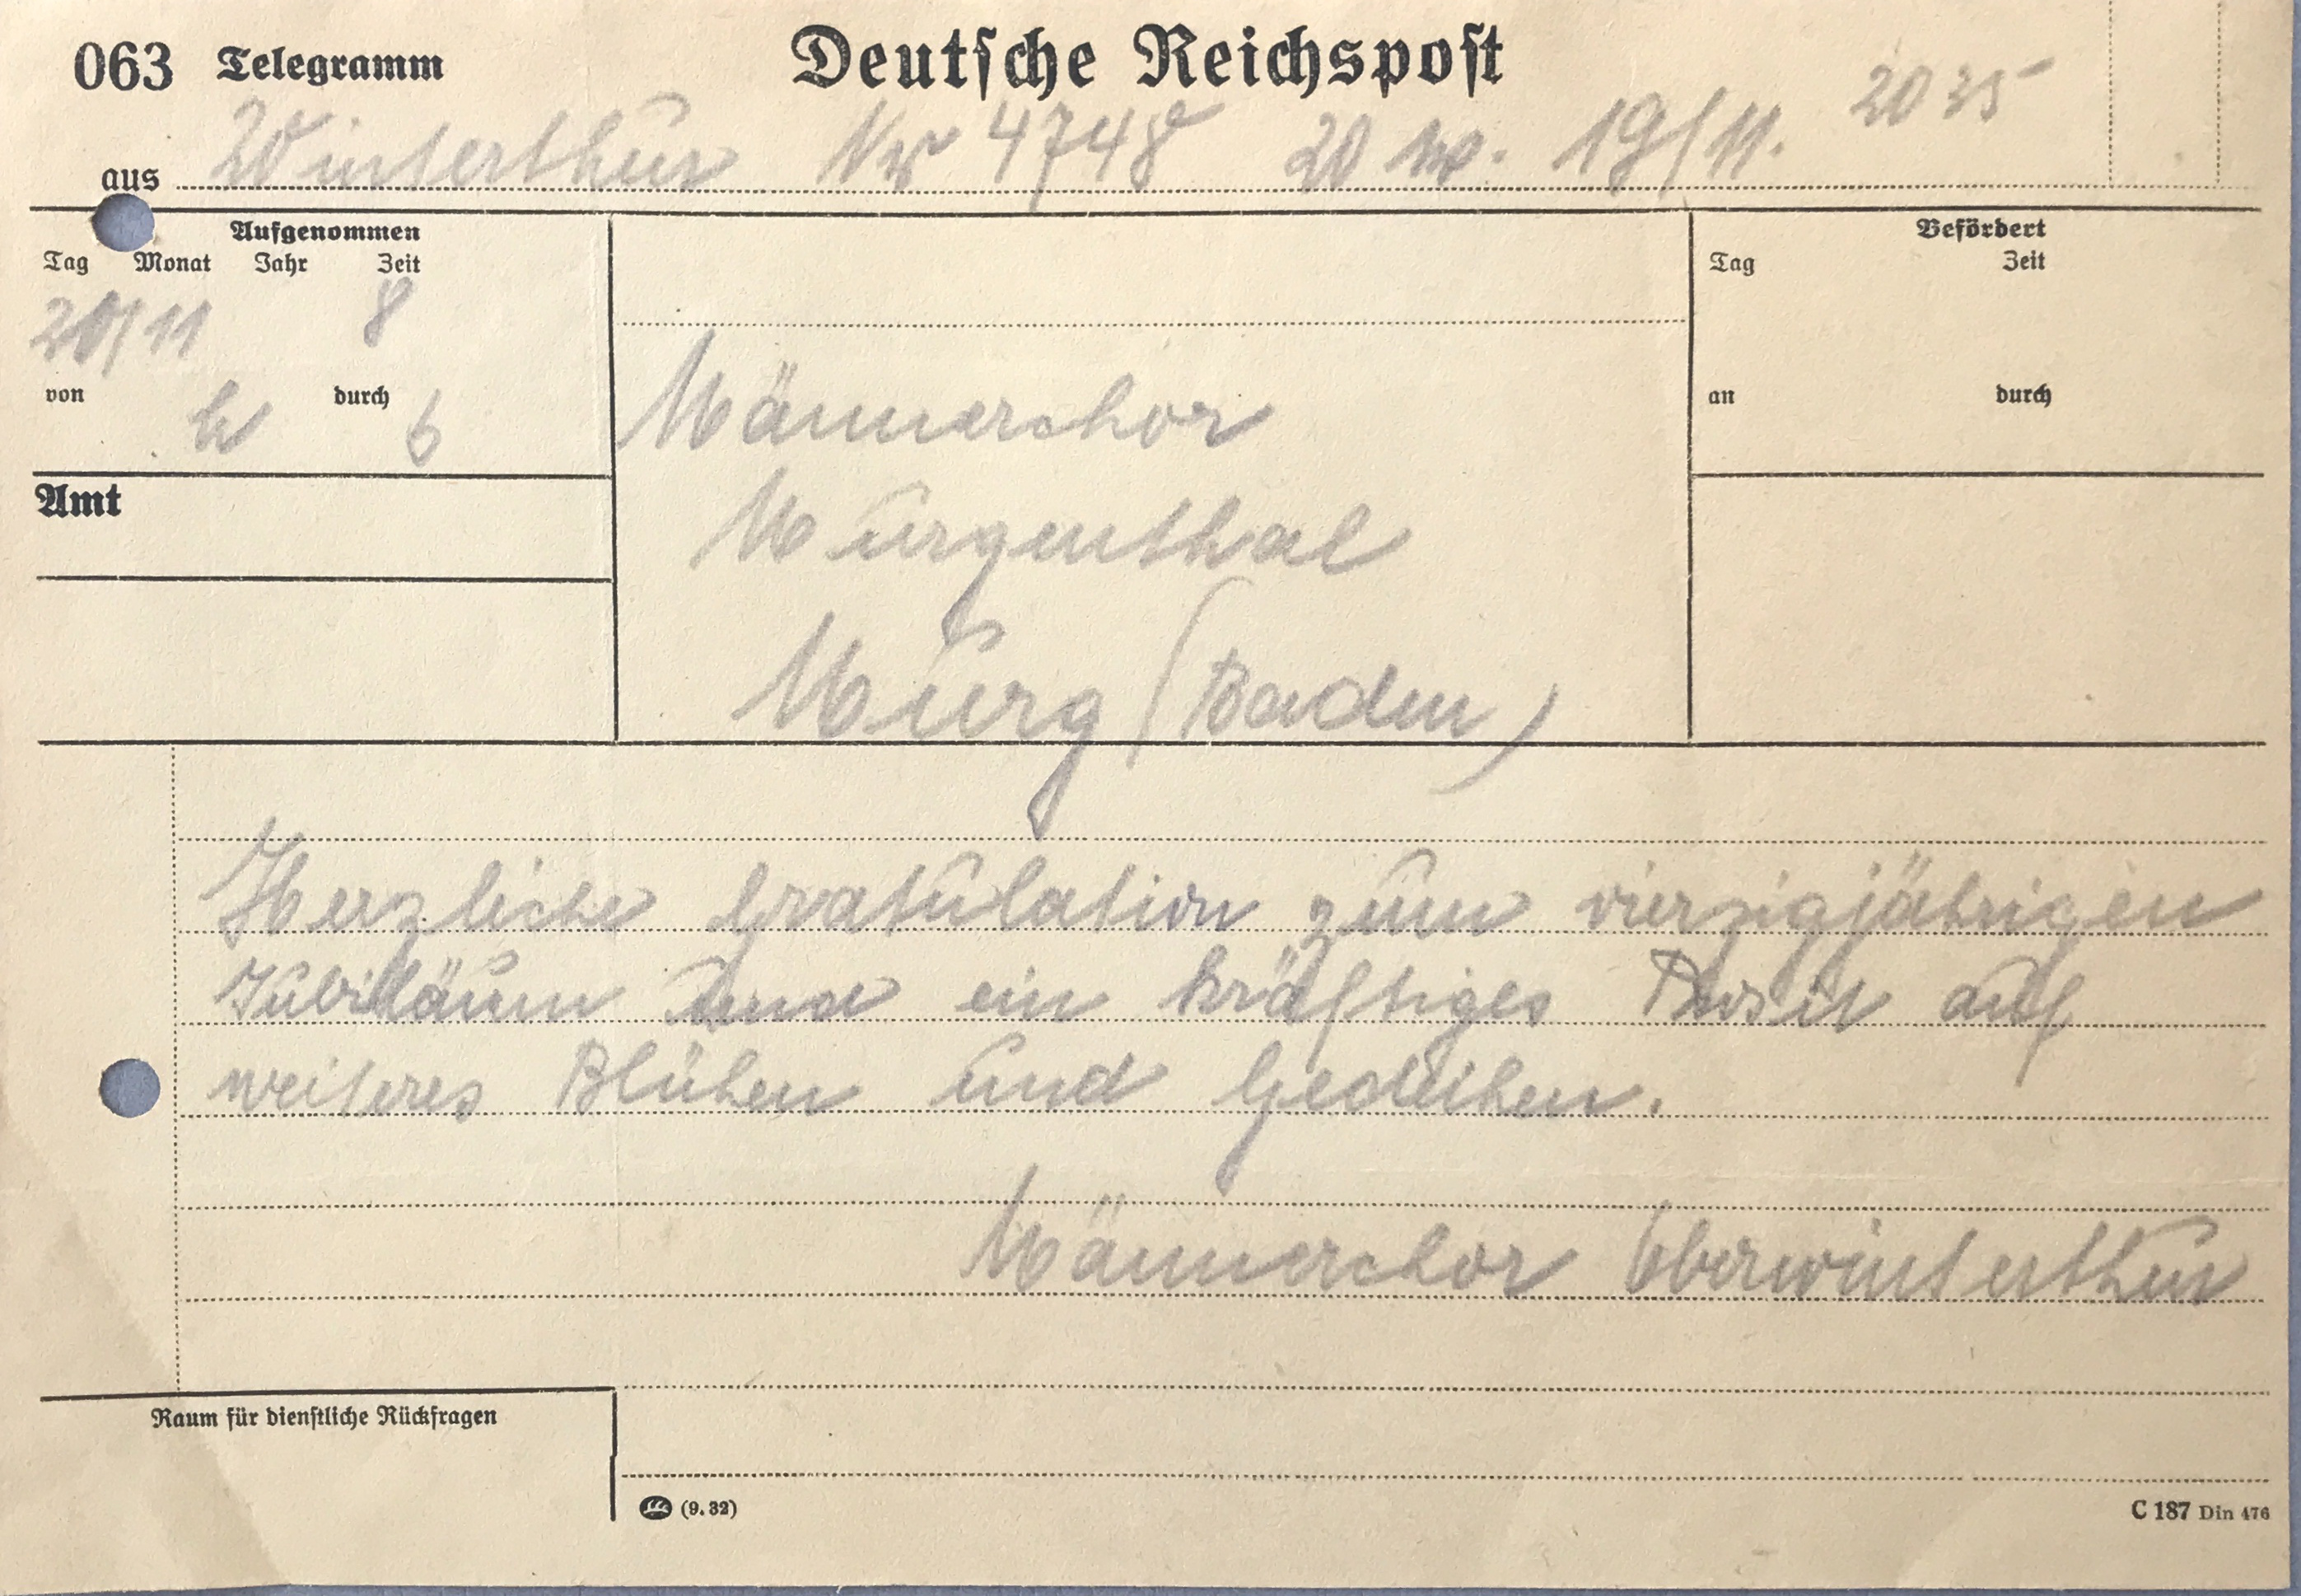 063 Telegramm Deutsche Reichspost
aus Winterthur Nr 4748 20 W. 19/11. 20 35
Aufgenommen
Tag Monat Jahr Zeit
20/11 8
von durch
Befördert
Tag Zeit
an durch
Amt
Männerchor
Murgenthal
Murg (Baden)
Herzliche Gratulation zum vierzigjährigen
Jubiläum und ein kräftiges Prosit auf
weiteres Blühen und Gedeihen.
Männerchor Oberwinterthur
Raum für dienstliche Rückfragen
(9. 32)
C 187 Din 476